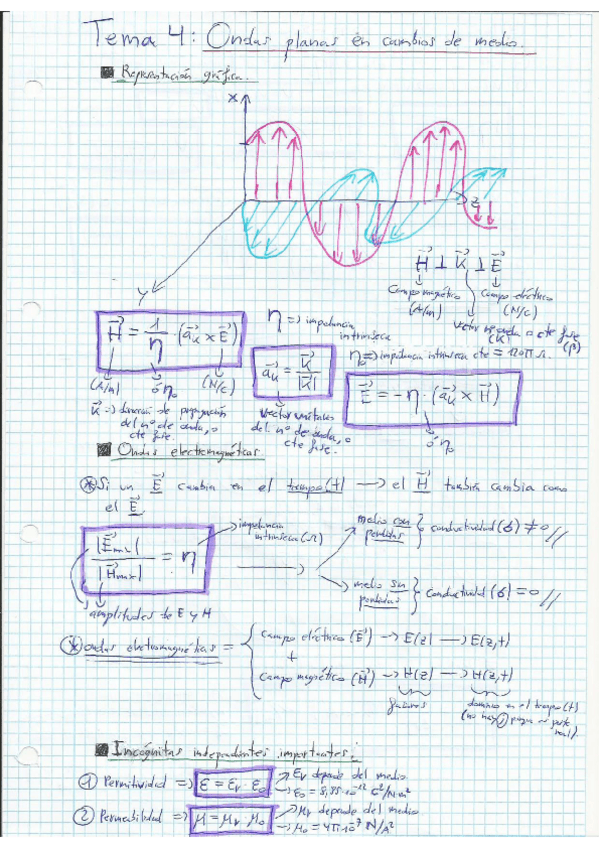 Tema 4: Ondas planas en cambios de medio.
■ Representación gráfica.
X
Z
Y
H⃗ ⊥ K⃗ ⊥ E⃗
Campo magnético (A/m)
Campo eléctrico (N/C)
vector nº onda o cte fase (K) (β)
H⃗ = 1/η · (a⃗k × E⃗)
(A/m) ó η₀ (N/C)
η => impedancia intrínseca
a⃗k = K⃗/|K⃗|
η₀ => impedancia intrínseca cte = 120π Ω.
E⃗ = -η · (a⃗k × H⃗)
ó η₀
K⃗ => dirección de propagación del nº de onda, o cte fase.
vector unitario del nº de onda, o cte fase.
■ Ondas electromagnéticas.
* Si un E⃗ cambia en el tiempo (t) → el H⃗ también cambia como
el E⃗.
|E⃗max| / |H⃗max| = η
impedancia intrínseca (Ω)
amplitudes de E y H
medio con perdidas } conductividad (σ) ≠ 0 //
medio sin perdidas } conductividad (σ) = 0 //
* ondas electromagnéticas = {
campo eléctrico (E⃗) → E(z) → E(z,t)
+
campo magnético (H⃗) → H(z) → H(z,t)
fasores
dominio en el tiempo (t)
(no hay j porque es parte real).
■ Incógnitas independientes importantes:
① Permitividad => ε = εr · ε₀
εr depende del medio
ε₀ = 8,85·10⁻¹² C²/N·m²
② Permeabilidad => μ = μr · μ₀
μr depende del medio
μ₀ = 4π·10⁻⁷ N/A²